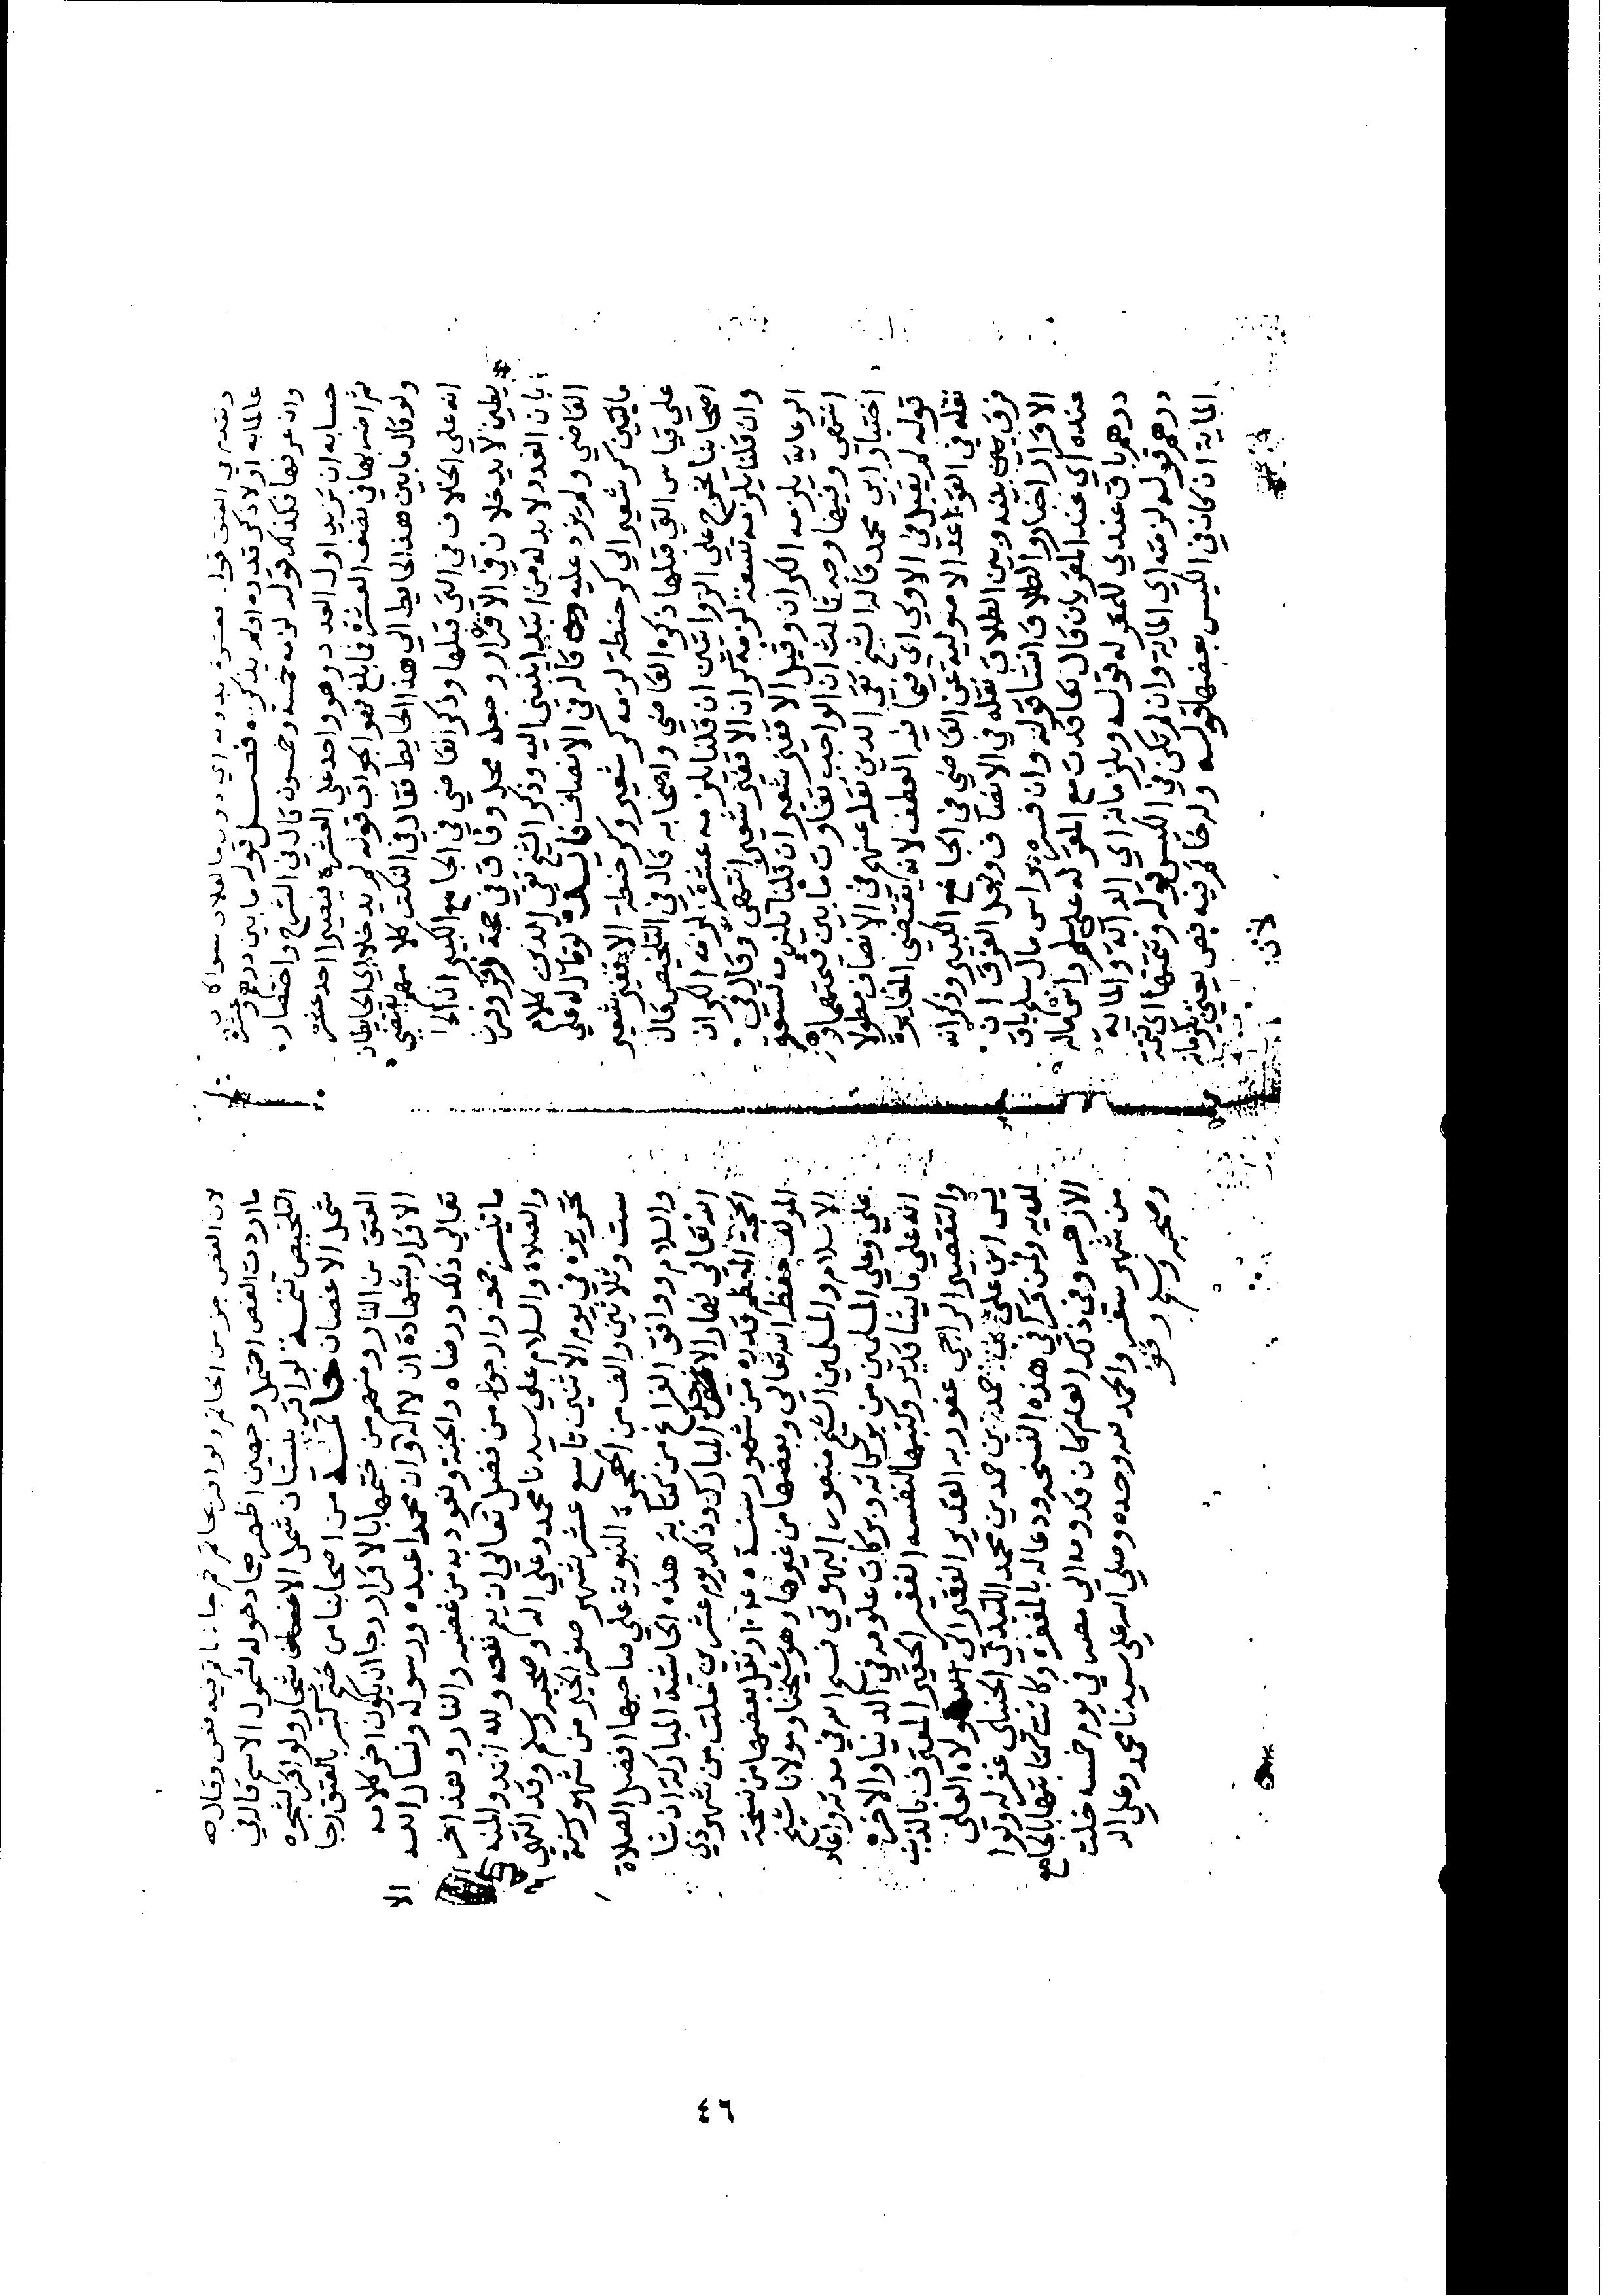 عالما به اولا ذكر قدره او لم يذكره فصل قوله ما بين درهم وعشرة
وان عرفها فكذلك قوله لزمه خمسة وخمسون قال في الشرح واختصار
حسابه ان تزيد اول العدد وهو واحد علي العشرة فيصير احد عشر
ثم اضربها في نصف العشرة فما بلغ فهو الجواب قوله لم يدخلا اي الحايطان
ولو قال ما بين هذا الحايط الي هذا الحايط فقال في النكت كلامهم يقتضي
انه علي الخلاف في التي قبلها وذكر القاضي في الجامع الكبير
لا يدخلان في الاقرار وجعله محل وفاق في حجة
بان العدد لا بد له من ابتدا ينبني اليه وذكر الشيخ تقي الدين كلام
القاضي ولم يزد عليه قاله في الانصاف فايدة لو قال له علي
ما بين كر شعير الي كر حنطة لزمه كر شعير وكر حنطة الا قفيز شعير
علي قياس التي قبلها ذكره القاضي واصحابه قال في التلخيص قال
اصحابنا يخرج علي الروايتين ان قلنا يلزمه عشرة لزمه الكران
وان قلنا يلزمه تسعة لزمه كران الا قفيز شعير انتهى وقال في
الرعاية يلزمه الكران وقيل الا قفيز شعير ان قلنا يلزمه تسعة
انتهى وفيها وجه ثالث ان الواجب تفاوت ما بين قيمتهما وهو
اختيار ابي محمد قاله الشيخ تقي الدين نقله عنهم في الانصاف مطولا
قوله لم يقبل في الاولي اي فيما فيه العطف لانه يقتضي المغايرة
نقله في القواعد الاصولية عن القاضي في الجامع الكبير وذكر انه
فرق بينه وبين الطلاق نقله في الانصاف وقول الفرق ان
الاقرار اخبار والطلاق انشا قوله وان فسره براس مال سلم باق
عنده اي عند المقر بان قال تعاقدت مع المقر له علي سلم راس ماله
درهم باق عندي للمقر له قوله ويلزمانه اي الداية والماية
درهم قوله لزمته اي الماية وان لم تكن في الكيس قوله وتتمتها اي تتمة
الماية ان كان في الكيس بعضها قوله وله خاتم فيه فص يعني يلزمانه
لان
لان الفص جزء من الخاتم ولو اقر بخاتم ثم جاءنا فيه فص وقال
ما اردت الفص احتمل وجهين اظهرهما دخوله لشمول الاسم قاله في
التلخيص تتمة لو اقر ببستان شمل الاشجار ولو اقر بشجرة
شمل الاغصان خاتمة من اصحابنا من ختم كتبه بالعتق رجا
العتق من النار ومنهم من ختمها بالاقرار رجا ان يكون اخر كلامه
الاقرار بشهادة ان لا اله الا الله وان محمدا عبده ورسوله ونسال الله
تعالي ذلك ورضاه والجنة ونعوذ به من غضبه والنار وهذا اخر
ما تيسر جمعه وارجوا من فضل الله تعالي ان يعم نفعه ولله الحمد والمنة
والصلاة والسلام علي سيدنا محمد وعلي اله وصحبه وسلم وقد انتهى
تحريره في يوم الاثنين تاسع عشر شهر صفر الخير من شهور سنة
ست وثلاثين والف من الهجرة النبوية علي صاحبها افضل الصلاة
والسلام ووافق الفراغ من كتابة هذه الحاشية المباركة ان شا
الله تعالي نهار المبارك وذلك يوم عشرين خلت من شهر ذي
الحجة المعظم قدره من شهور سنة نقل بعضها من نسخة
المولف حفظه الله تعالي وبعضها من غيرها وهو شيخنا ومولانا شيخ
الاسلام والمسلمين الشيخ منصور البهوتي فسح الله في مدته واعاد
علي وعلي المسلمين من بركاته وبركات علومه في الدنيا والاخرة
انه علي ما يشا قدير وكتبها لنفسه الفقير الحقير المعترف بالذنب
والتقصير الراجي عفو ربه القدير الفقير الي مولاه العلي
يس ابن علي بن احمد بن احمد بن محمد اللبدي الحنبلي غفر له ولوا
لديه ولمن قرا في هذه النسخه ودعا له بالمغفرة وكانت كتابتها بالجامع
الازهر وفي ذلك العام كان قدومه الي مصر في يوم خمسة خلت
من شهر صفر والحمد لله وحده وصلي الله علي سيدنا محمد وعلي اله
وصحبه وسلم
٤٦